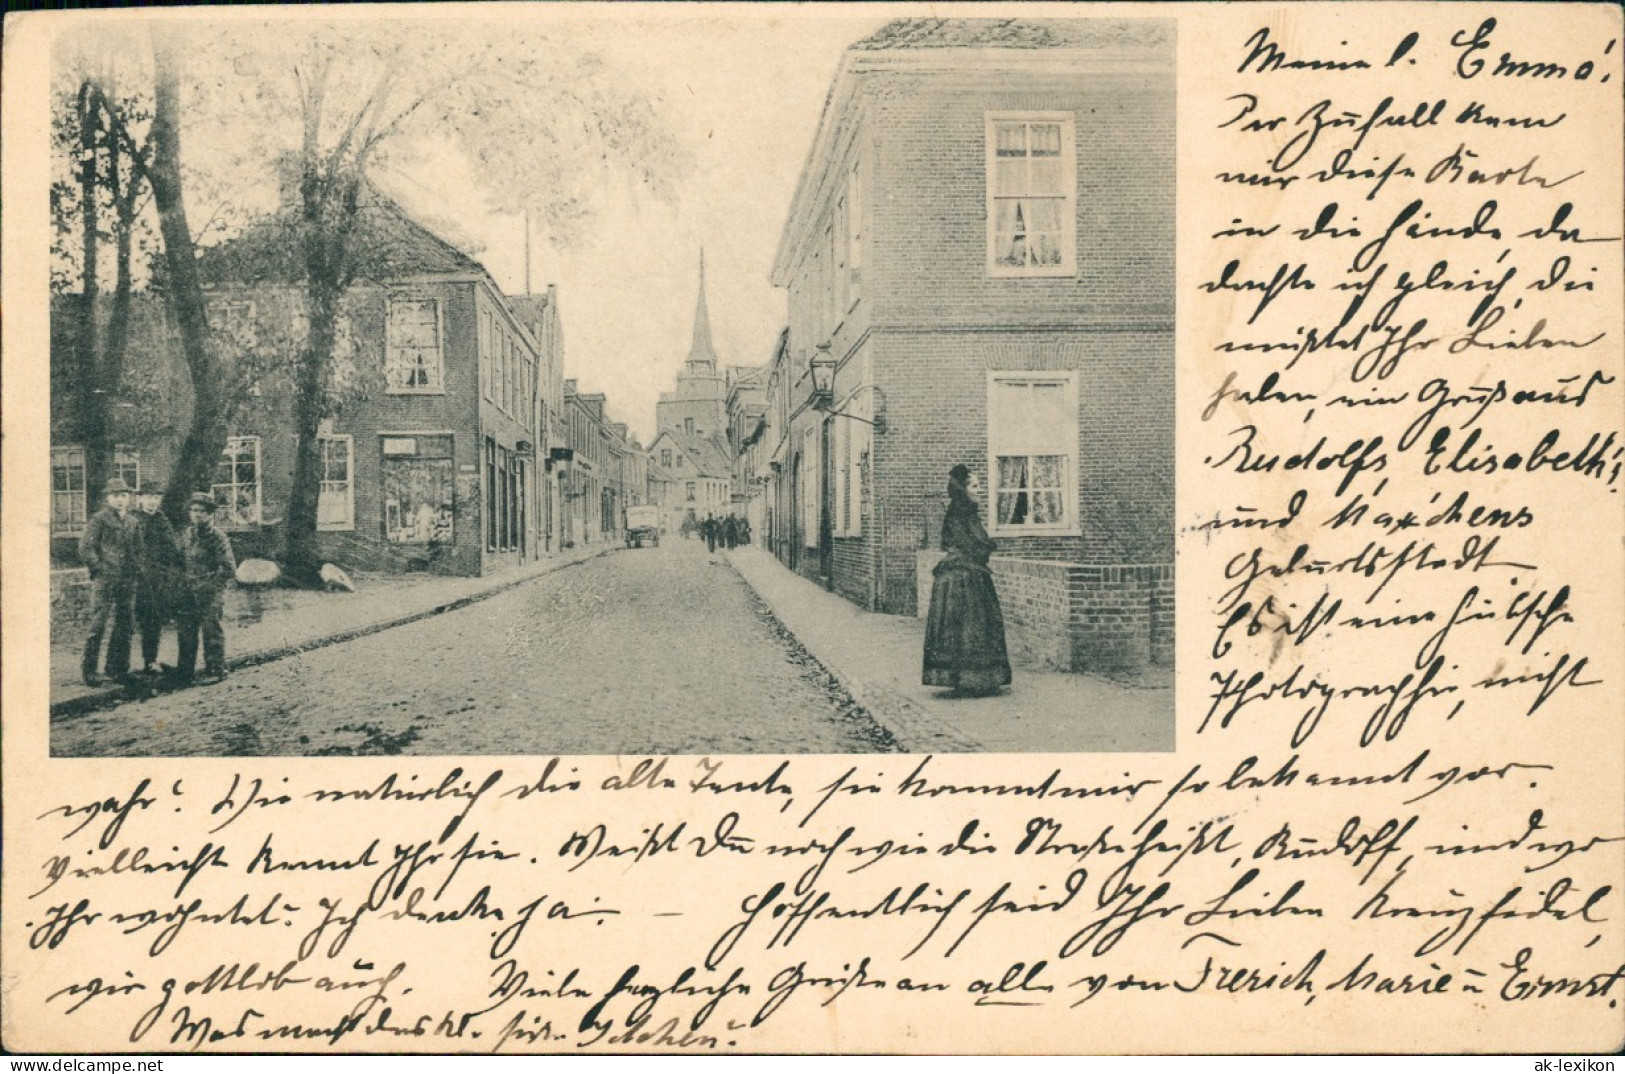 Meine l. Emma!
Der Zufall kam
mir diese Karte
in die Hände, da
dachte ich gleich, die
müßtet Ihr Lieben
haben, ein Gruß aus
Rudolfs, Elisabeth's
und Mäxchens
Geburtsstadt
Es ist eine hübsche
Photographie, nicht
wahr? Wie natürlich die alte Tante, sie kommt mir so bekannt vor.
Vielleicht kennt Ihr sie. Weißt Du noch wie die Straße heißt, Rudolf, und wo
Ihr wohntet? Ich denke ja. – Hoffentlich seid Ihr Lieben kreuzfidel,
wir gottlob auch. Viele herzliche Grüße an alle von Frerich, Marie u Ernst.
Was macht das kl. süße
ak-lexikon